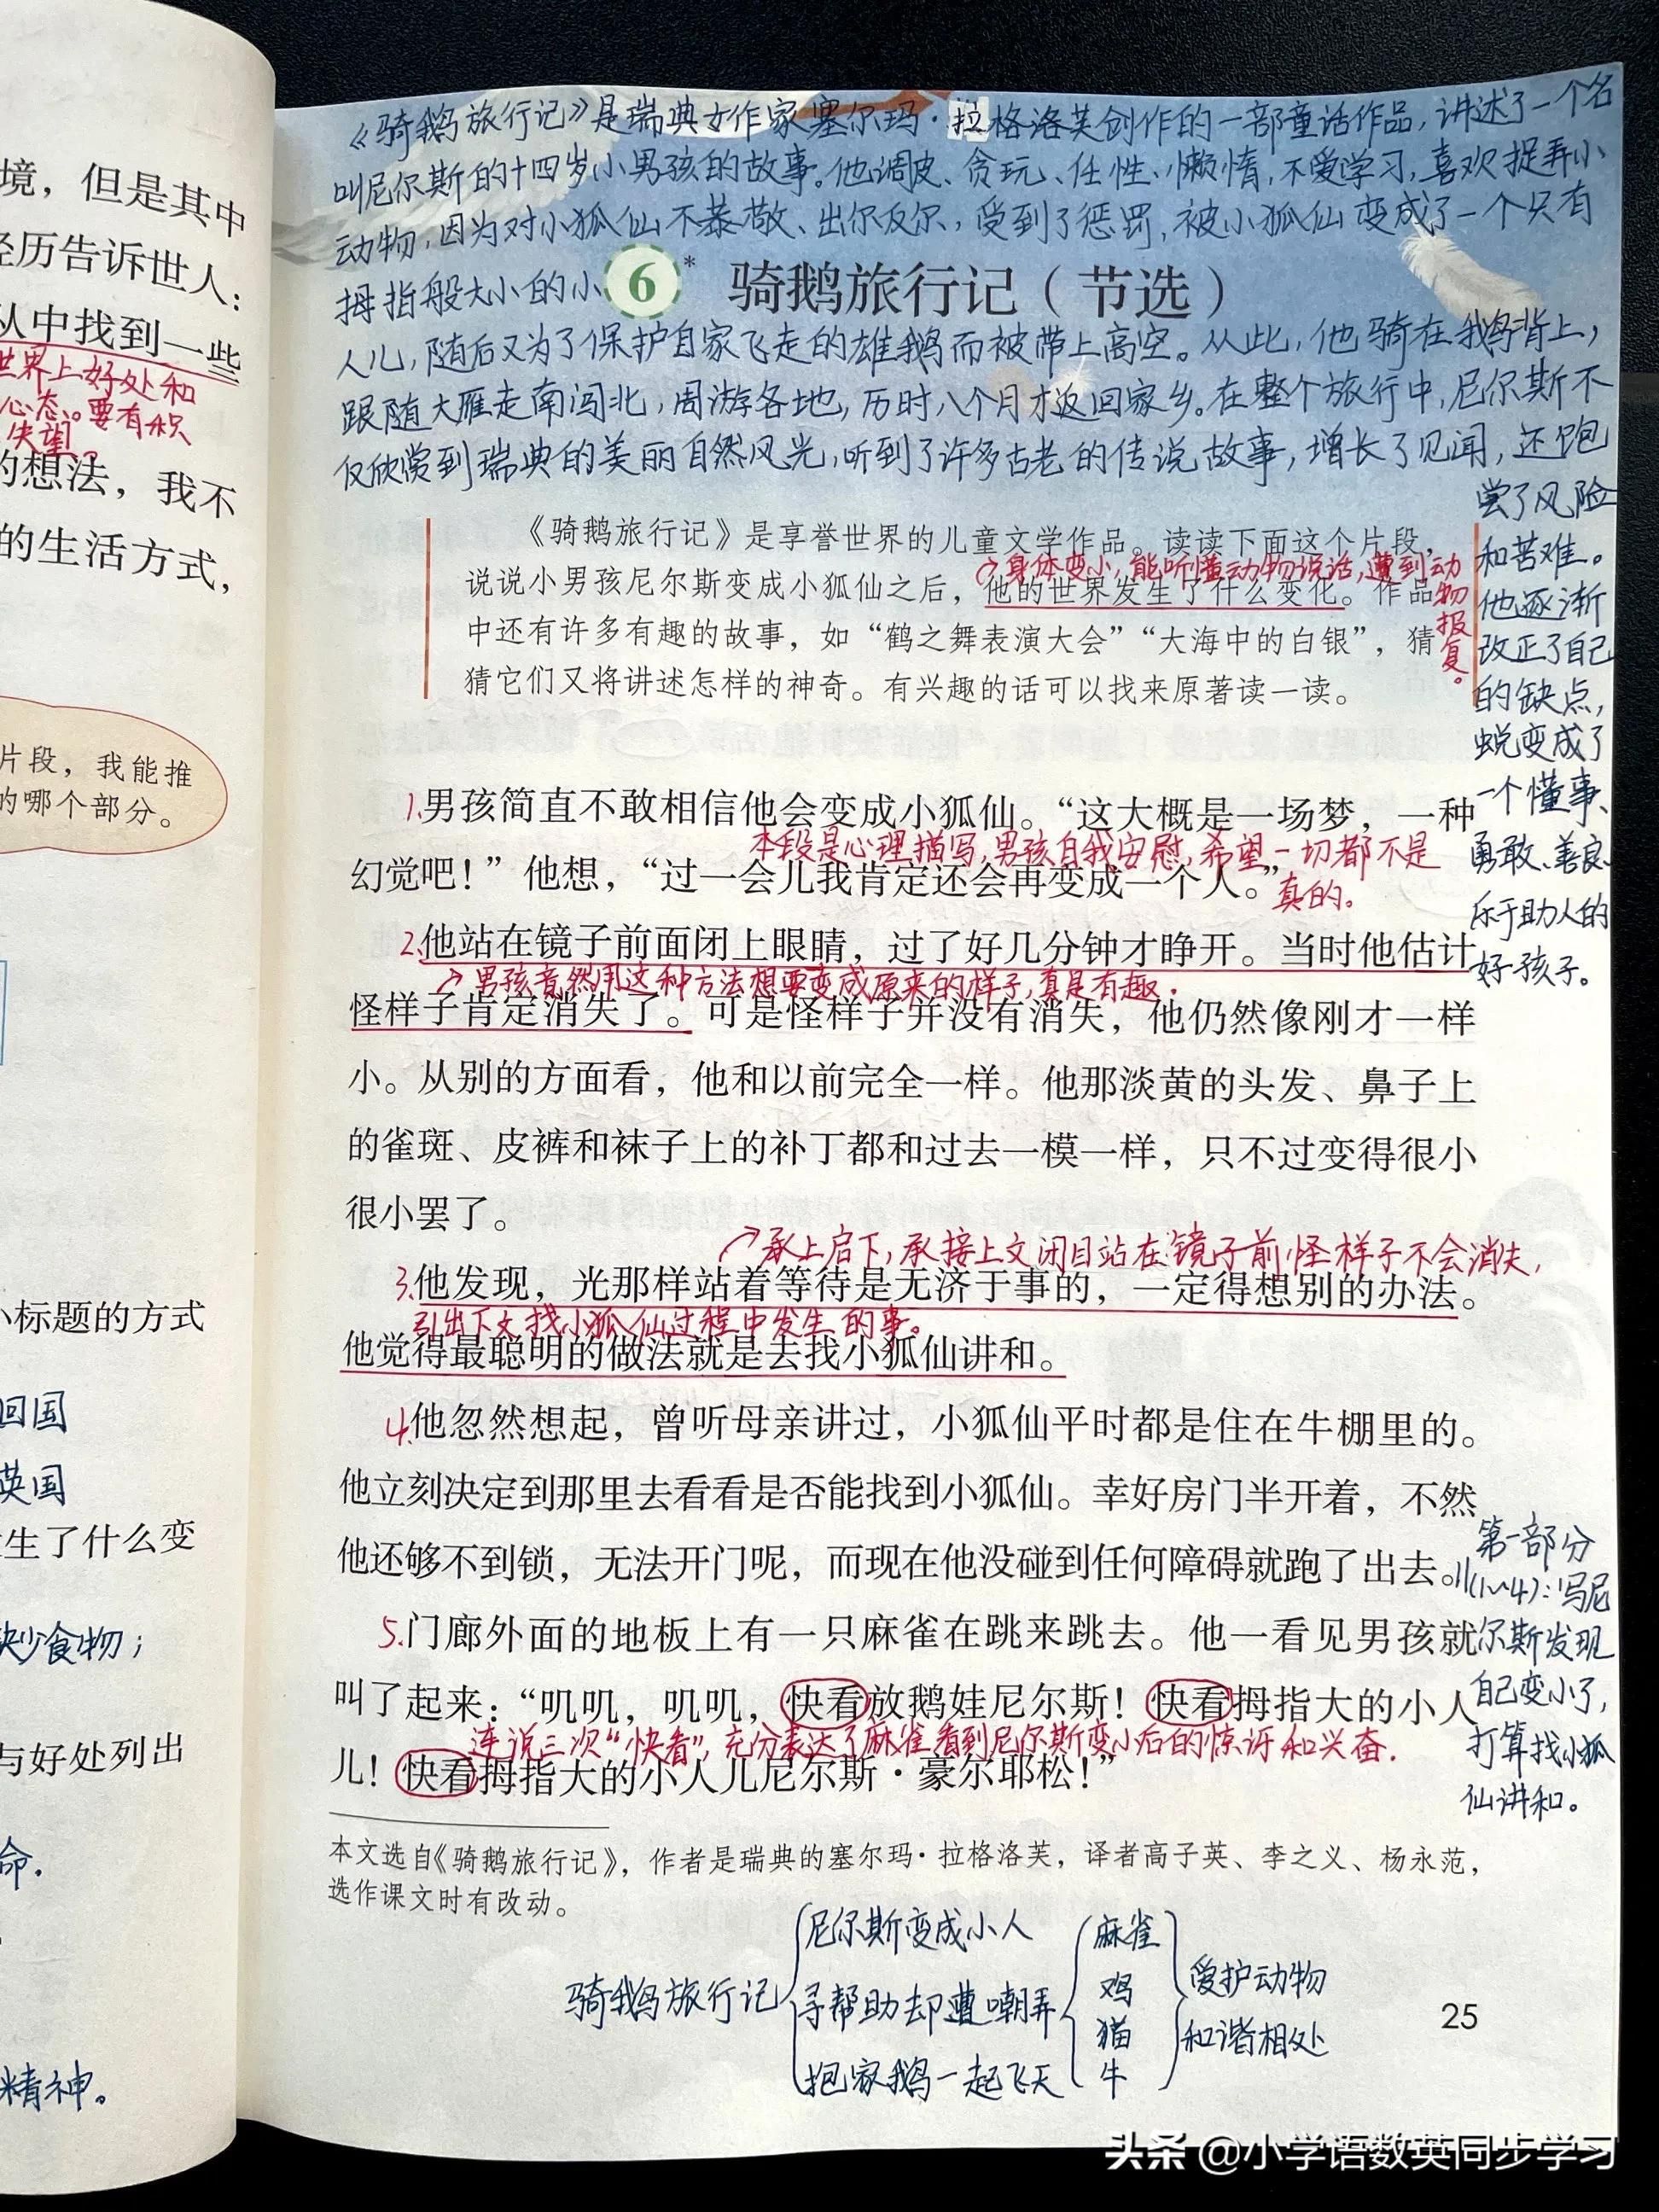 境，但是其中
经历告诉世人：
从中找到一些
世界上好处和
心态。要有积
失望。
的想法，我不
的生活方式，
片段，我能推
的哪个部分。
小标题的方式
回国
英国
生了什么变
缺少食物；
与好处列出
命.
精神。
《骑鹅旅行记》是瑞典女作家塞尔玛·拉格洛芙创作的一部童话作品，讲述了一个名
叫尼尔斯的十四岁小男孩的故事。他调皮、贪玩、任性、懒惰，不爱学习，喜欢捉弄小
动物，因为对小狐仙不恭敬、出尔反尔，受到了惩罚，被小狐仙变成了一个只有
拇指般大小的小
6* 骑鹅旅行记（节选）
人儿，随后又为了保护自家飞走的雄鹅而被带上高空。从此，他骑在鹅背上，
跟随大雁走南闯北，周游各地，历时八个月才返回家乡。在整个旅行中，尼尔斯不
仅欣赏到瑞典的美丽自然风光，听到了许多古老的传说故事，增长了见闻，还饱
尝了风险
和苦难。
他逐渐
改正了自己
的缺点，
蜕变成了
一个懂事、
勇敢、善良、
乐于助人的
好孩子。
《骑鹅旅行记》是享誉世界的儿童文学作品。读读下面这个片段，
身体变小，能听懂动物说话，遭到动
物报复。
说说小男孩尼尔斯变成小狐仙之后，他的世界发生了什么变化。作品
中还有许多有趣的故事，如“鹤之舞表演大会”“大海中的白银”，猜
猜它们又将讲述怎样的神奇。有兴趣的话可以找来原著读一读。
1.男孩简直不敢相信他会变成小狐仙。“这大概是一场梦，一种
本段是心理描写，男孩自我安慰，希望一切都不是
真的。
幻觉吧！”他想，“过一会儿我肯定还会再变成一个人。”
2.他站在镜子前面闭上眼睛，过了好几分钟才睁开。当时他估计
男孩竟然用这种方法想要变成原来的样子，真是有趣.
怪样子肯定消失了。可是怪样子并没有消失，他仍然像刚才一样
小。从别的方面看，他和以前完全一样。他那淡黄的头发、鼻子上
的雀斑、皮裤和袜子上的补丁都和过去一模一样，只不过变得很小
很小罢了。
承上启下，承接上文闭目站在镜子前，怪样子不会消失，
3.他发现，光那样站着等待是无济于事的，一定得想别的办法。
引出下文找小狐仙过程中发生的事。
他觉得最聪明的做法就是去找小狐仙讲和。
4.他忽然想起，曾听母亲讲过，小狐仙平时都是住在牛棚里的。
他立刻决定到那里去看看是否能找到小狐仙。幸好房门半开着，不然
他还够不到锁，无法开门呢，而现在他没碰到任何障碍就跑了出去。//
第一部分
(1~4)：写尼
尔斯发现
自己变小了，
打算找小狐
仙讲和。
5.门廊外面的地板上有一只麻雀在跳来跳去。他一看见男孩就
叫了起来：“叽叽，叽叽，快看放鹅娃尼尔斯！快看拇指大的小人
连说三次“快看”，充分表达了麻雀看到尼尔斯变小后的惊讶和兴奋.
儿！快看拇指大的小人儿尼尔斯·豪尔耶松！”
本文选自《骑鹅旅行记》，作者是瑞典的塞尔玛·拉格洛芙，译者高子英、李之义、杨永范，
选作课文时有改动。
骑鹅旅行记
尼尔斯变成小人
寻帮助却遭嘲弄
抱家鹅一起飞天
麻雀
鸡
猫
牛
爱护动物
和谐相处
25
头条 @小学语数英同步学习